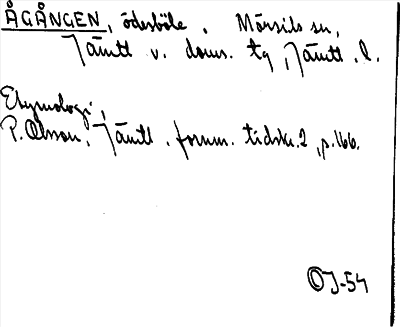 ÅGÅNGEN, ödesböle. Mörsils sn,
Jämtl v. doms. tg, Jämtl. l.
Etymologi;
P. Olsson, Jämtl. fornm. tidskr. 2, p. 166.
OJ-54